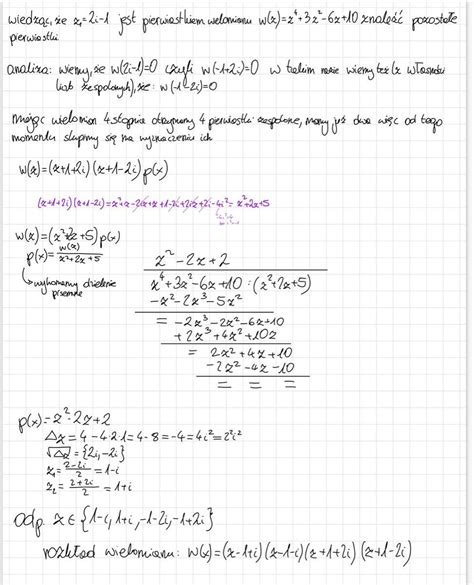 wiedząc, że z₁=2i-1 jest pierwiastkiem wielomianu w(z)=z⁴+3z²-6z+10 znaleźć pozostałe
pierwiastki
analiza: wiemy, że w(2i-1)=0 czyli w(-1+2i)=0 w takim razie wiemy też (z własności
liczb zespolonych), że: w(-1-2i)=0
mając wielomian 4 stopnia otrzymamy 4 pierwiastki zespolone, mamy już dwa więc od tego
momentu skupimy się na wyznaczeniu ich
w(z)=(z+1+2i)(z+1-2i)p(x)
(z+1+2i)(z+1-2i)=z²+z-2iz+z+1-2i+2iz+2i-4i²=z²+2z+5
w(z)=(z²+2z+5)p(x)
p(x)=w(z)/z²+2z+5
↳wykonamy dzielenie
pisemne
z²-2z+2
z⁴+3z²-6z+10:(z²+2z+5)
-z²-2z³-5z²
= -2z³-2z²-6z+10
+2z³+4z²+10z
= 2z²+4z+10
-2z²-4z-10
= = =
p(x)=z²-2z+2
Δz=4-4·2·1=4-8=-4=4i²=2²i²
√Δz={2i,-2i}
z₁=2-2i/2=1-i
z₂=2+2i/2=1+i
odp. z∈{1-i,1+i,-1-2i,-1+2i}
rozkład wielomianu: w(x)=(z-1+i)(z-1-i)(z+1+2i)(z+1-2i)